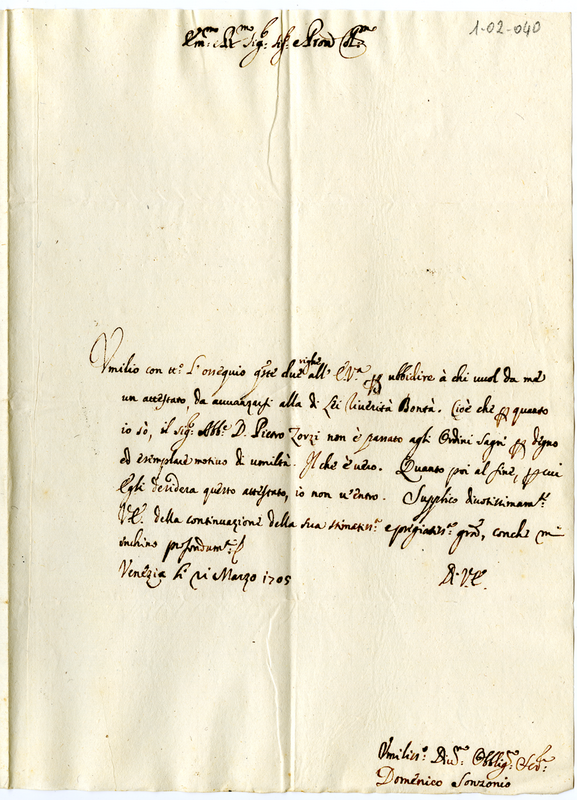 1-02-040
Em:º e R:mo Sig:r Sig:r e Pron Col:mo
Vmilio con tt:º L'ossequio q:ste due righe all' E.V.ª p ubbidire à chi vuol da me
un attestato, da avvanzarsi alla di Lei riverità Bontà. Cioè che p quanto
io sò, il Sig:r Abb:e D. Pietro Zorzi non è passato agli Ordini Sagri p degno
ed esemplare motivo di umiltà. Il che è vero. Quanto poi al fine, p cui
Egli desidera questo attestato, io non v'entro. Supplico divotissimam:te
V.E. della continuazione della sua stimatis:ª e pregiatis:ª graª, conche mi
inchino profondam:te
Venezia li xi Marzo 1705
Di V.E.
Vmilis:º Div:mo Obblig:mo Ser:r
Domenico Sonzonio